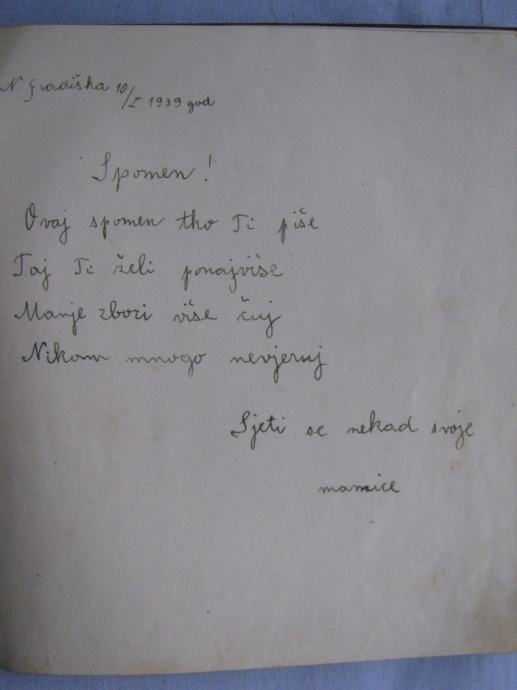 N. Gradiška 10/I 1939 god
Spomen!
Ovaj spomen tko Ti piše
Taj Ti želi ponajviše
Manje zbori više čuj
Nikom mnogo nevjeruj
Sjeti se nekad svoje
mamice